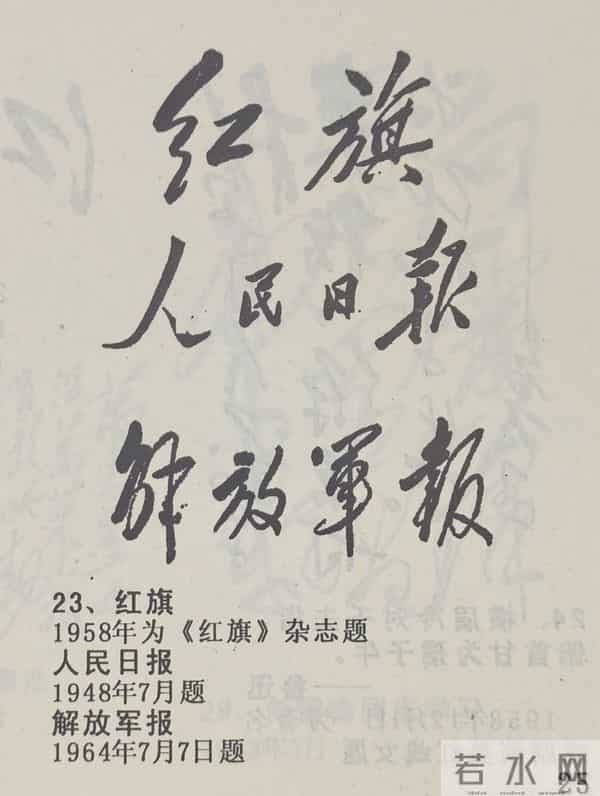 红旗
人民日报
解放軍报
23、红旗
1958年为《红旗》杂志题
人民日报
1948年7月题
解放军报
1964年7月7日题
若水网
25